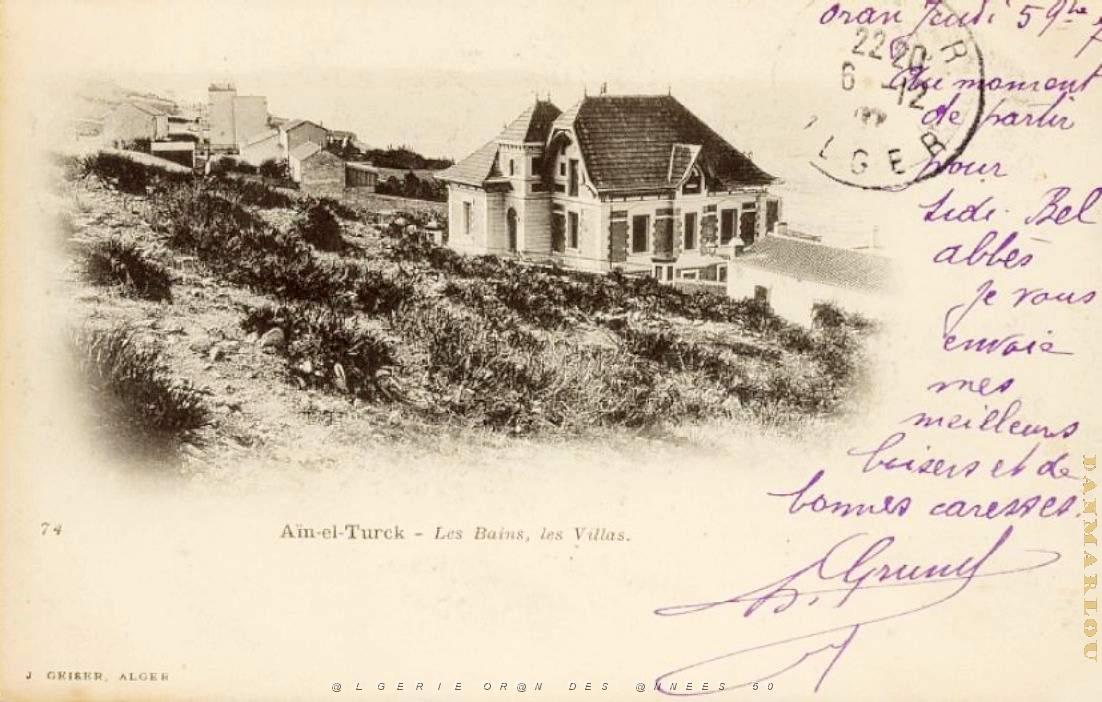 Oran Jeudi 5 9bre
Au moment
de partir
pour
Sidi-Bel
abbès
je vous
envoie
mes
meilleurs
baisers et de
bonnes caresses.
22 20
6 12
LGER
74 Aïn-el-Turck - Les Bains, les Villas.
J. GEISER, ALGER
@LGERIE OR@N DES @NNEES 50
DANMARLOU